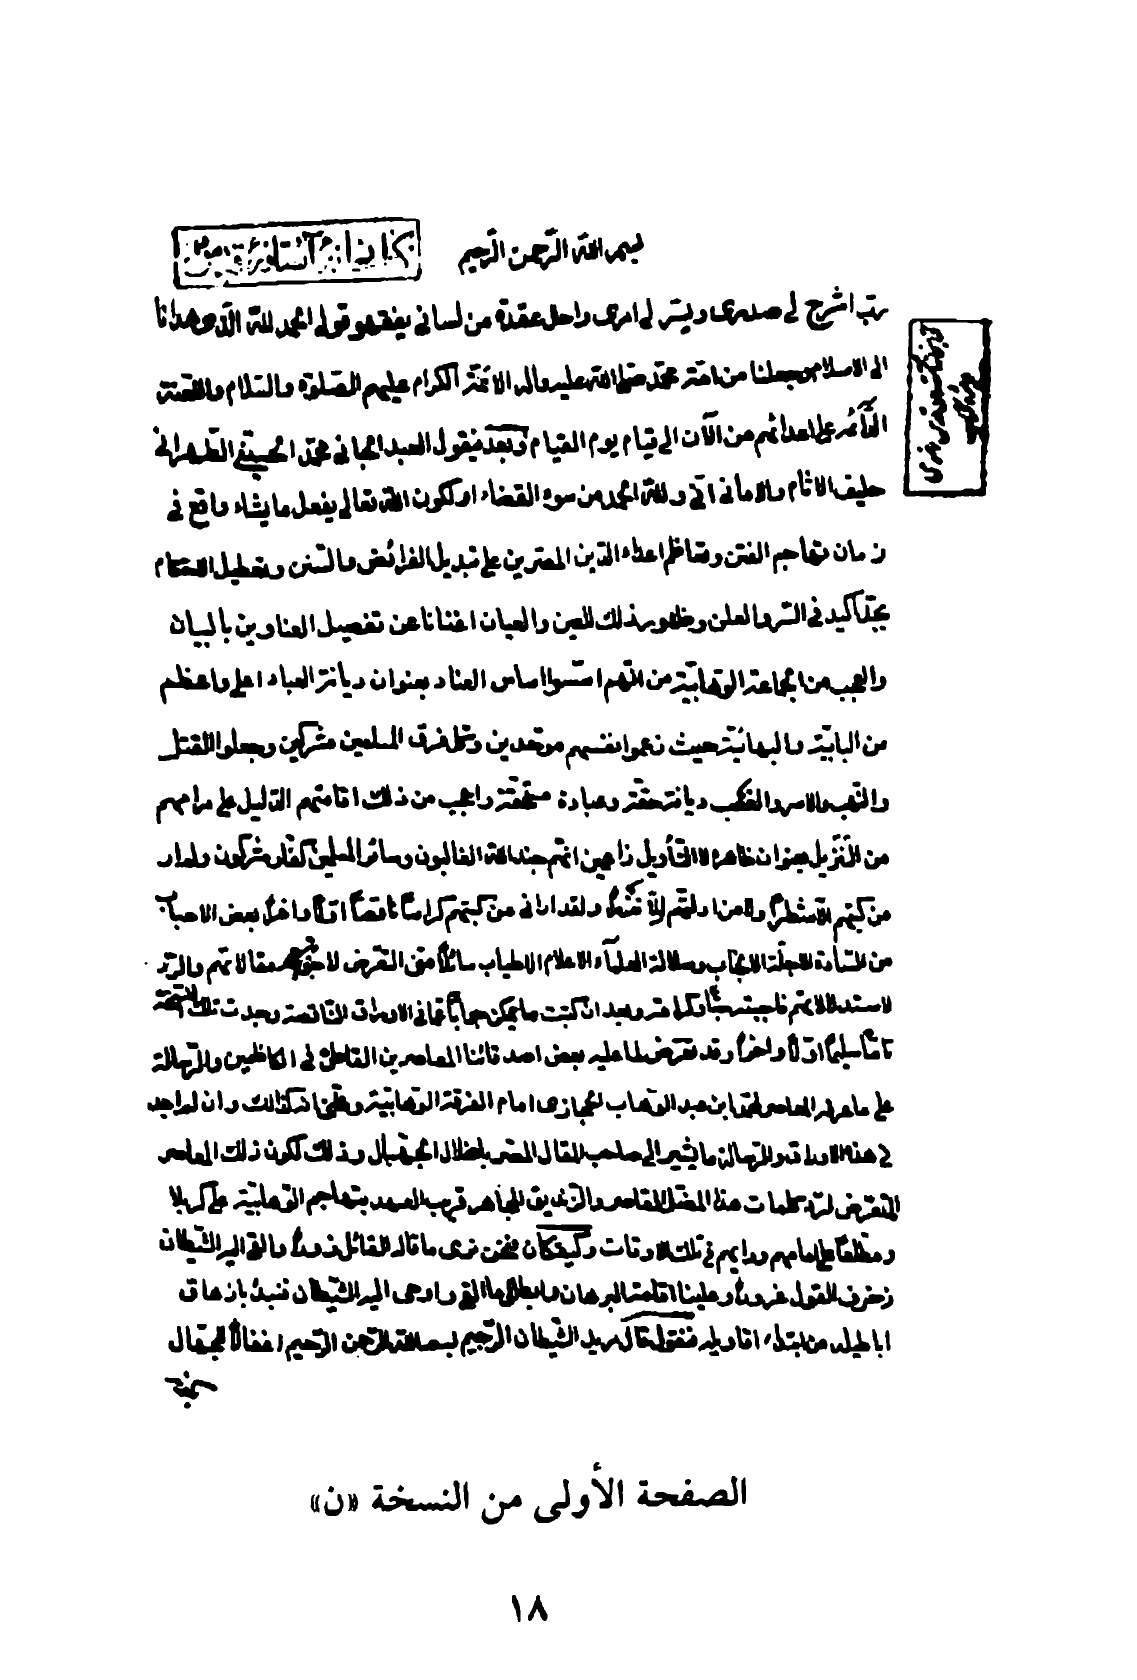 بسم الله الرحمن الرحيم
ربّ اشرح لي صدري ويسّر لي امري واحلل عقدة من لساني يفقهوا قولي الحمد للّه الّذي هدانا
الى الاسلام وجعلنا من امّة محمّد صلى الله عليه واله الائمّة الكرام عليهم الصّلوة والسّلام واللّعنة
على اعدائهم من الآن الى قيام يوم القيام وبعد فيقول العبد الجاني محمّد الحسيني الطهراني
حليف الاثام والاماني انّي وللّه الحمد من سوء القضاء او لكون اللّه تعالى يفعل ما يشاء واقع في
زمان تهاجم الفتن وتظاهر اعداء الدّين المصرين على تبديل الفرائض والسّنن وتعطيل الاحكام
بجدّ اكيد في السّر والعلن وظهور ذلك للعين والعيان اغنانا عن تفصيل العناوين بالبيان
والعجب من الجماعة الوهّابيّة من انّهم اسّسوا اساس العناد بعنوان ديانة العباد اعلى واعظم
من البابيّة والبهائيّة حيث زعموا انفسهم موحّدين وكلّ فرق المسلمين مشركين وجعلوا القتل
والنّهب والاسر والغصب ديانة حقّة وعبادة واعجب من ذلك اقامتهم الدّليل على مرامهم
من التّنزيل بعنوان ظاهره لا التّأويل زاعمين انّهم جند اللّه الغالبون وسائر المسلمين كفّار مشركون ولم ار
من كتبهم الّا سطراً ولا من ادلّتهم ولقد اراني من كتبهم كراساً ناقصاً اوّلاً واخراً بعض الاحباب
من السّادة الاجلّة الانجاب وسلالة العلمآء الاعلام الاطياب سائلاً منّي التّعرض مقالاتهم والرّد
لاستدلالاتهم فاجبته وبعد ان كتبت ما يمكن جواباً عمّا في الاوراق النّاقصة وجدت تلك النسخة
تامّاً سليماً اوّلاً واخراً وقد تعرّض لما عليه بعض اصدقائنا المعاصرين القاطن في الكاظمين والرّسالة
على ما عرفه المعاصر لمحمّد ابن عبد الوهّاب الحجازي امام الفرقة الوهّابيّة وظنّي انه كذلك وان لم اجد
في هذه الاوراق والرّسالة ما يشير الى صاحب المقال المصر باضلال الجهّال وذلك لكون ذلك المعاصر
المتعرّض لردّ كلمات هذا المضلّ المقاصر والزّنديق المجاهر قريب العهد بتهاجم الوهّابيّة على كربلا
ومطّلعاً على امامهم ورايهم في تلك الاوقات وكيف كان فنحن نرى ما قاله القائل زوراً والقى اليه الشّيطان
زخرف القول غروراً وعلينا اقامة البرهان وابطال ما القى واوحى اليه الشّيطان فنبدأ بازهاق
اباطيله من ابتداء اقاويله فنقول قال مريد الشّيطان الرّجيم بسم اللّه الرّحمن الرّحيم اغفالاً للجهّال
الصفحة الأولى من النسخة «ن»
١٨